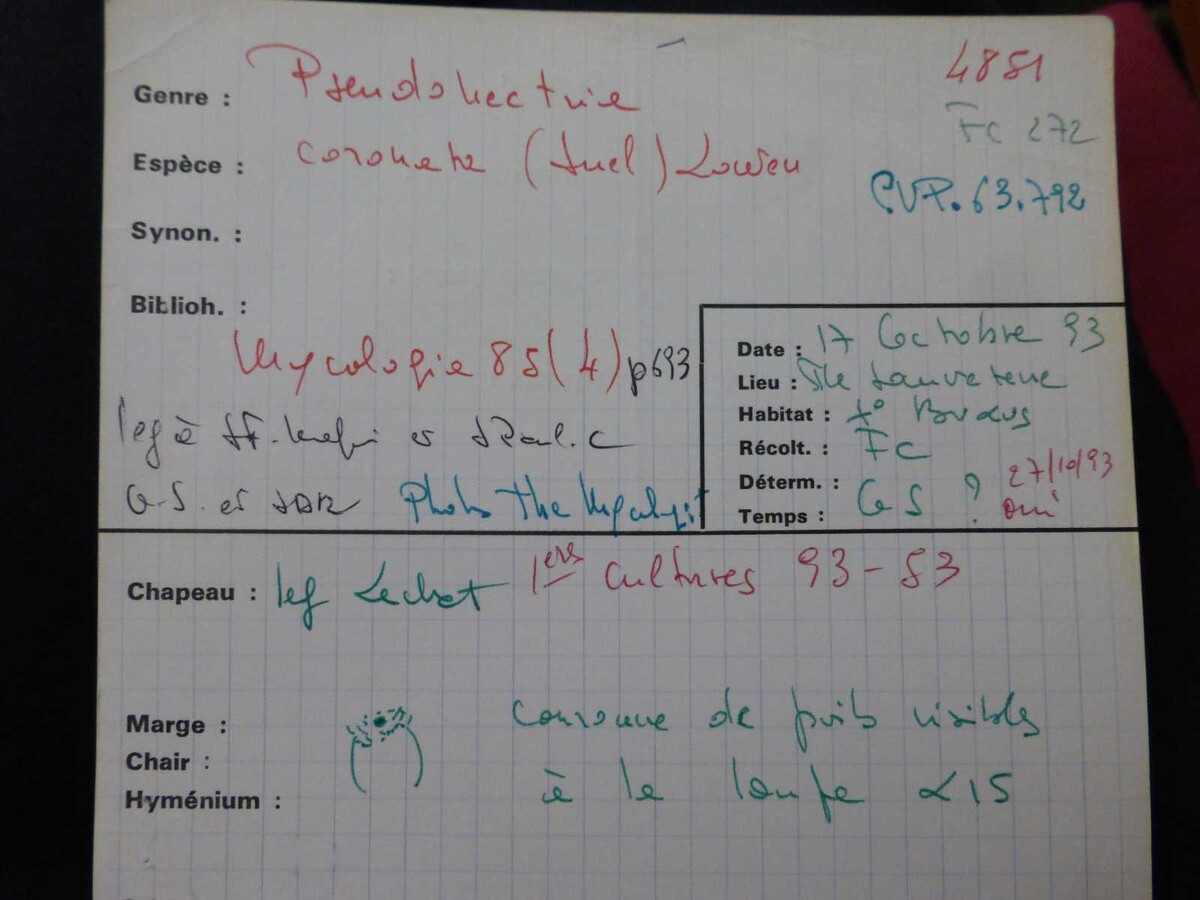 Genre : Pseudonectria
4851
Fc 272
Espèce : coronata (Juel) Lowen
CVP. 63.792
Synon. :
Biblioh. :
Mycologia 85(4) p693
Date : 17 Octobre 93
Lieu : Ile
Habitat : Buxus
Récolt. : FC
Déterm. : GS ? 27/10/93
Temps : oui
leg à et
G.S. et Photo The Mycologist
Chapeau : leg Lechat 1ers cultures 93-53
Marge :
Chair :
Hyménium :
couronne de poils visibles
à la loupe x15